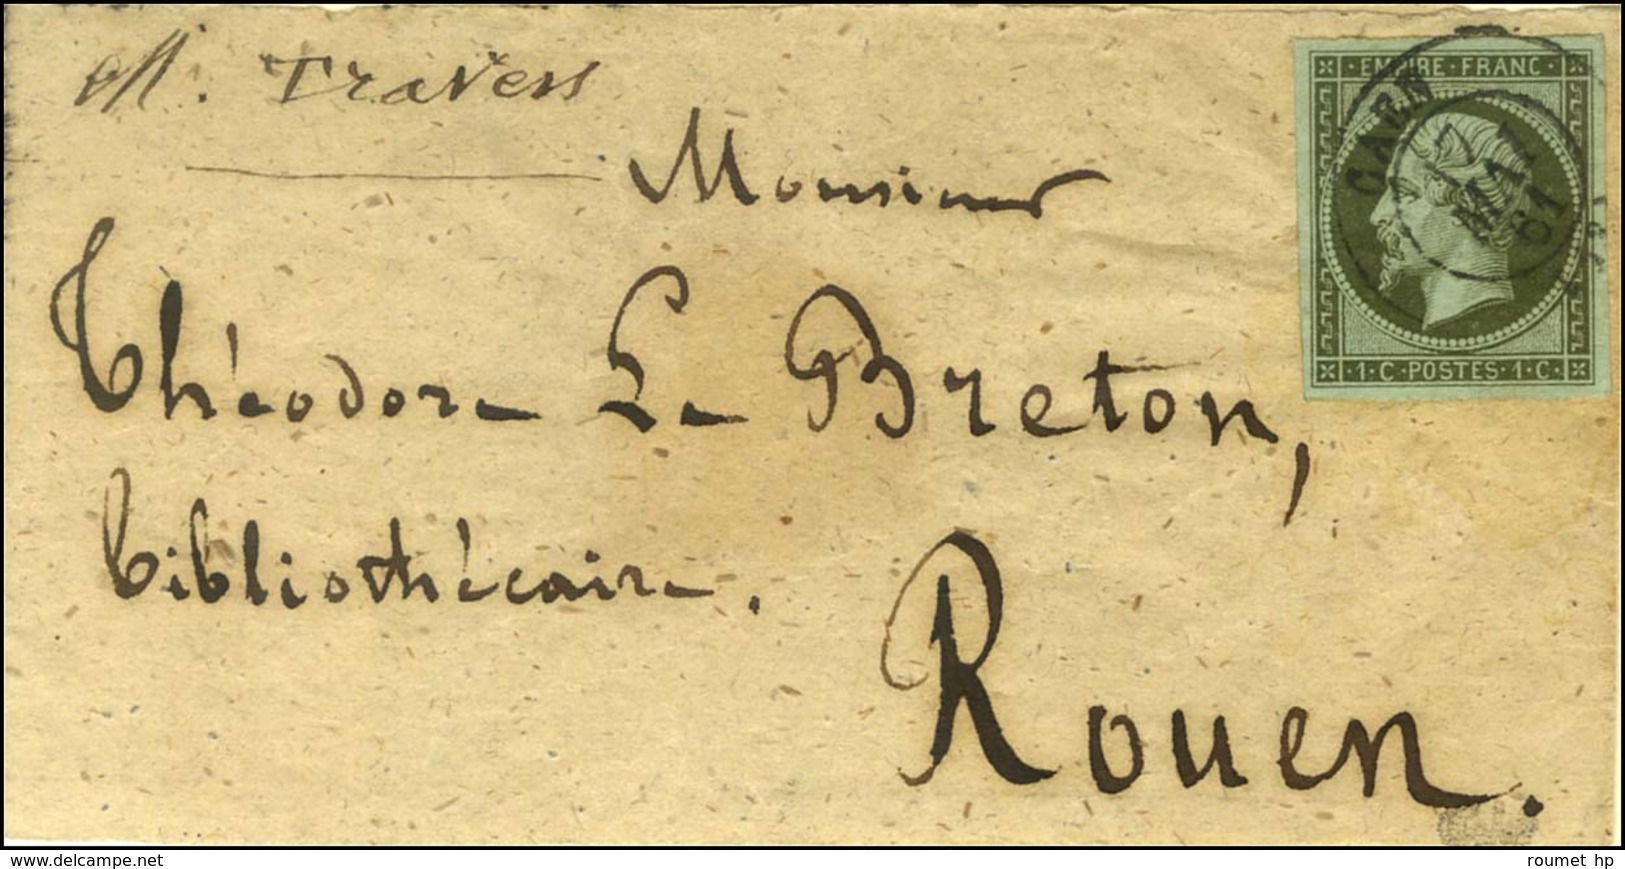 M. Travers
Monsieur
Théodore Le Breton,
bibliothécaire.
Rouen.
EMPIRE · FRANC ·
· 1 · C · POSTES · 1 · C ·
CAEN
17
MAI
61
www.delcampe.net
roumet hp